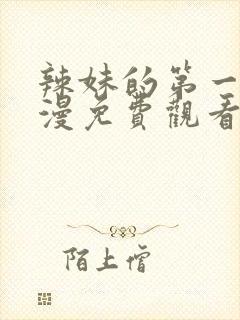 辣妹的第一
漫免費觀看
陌上僧